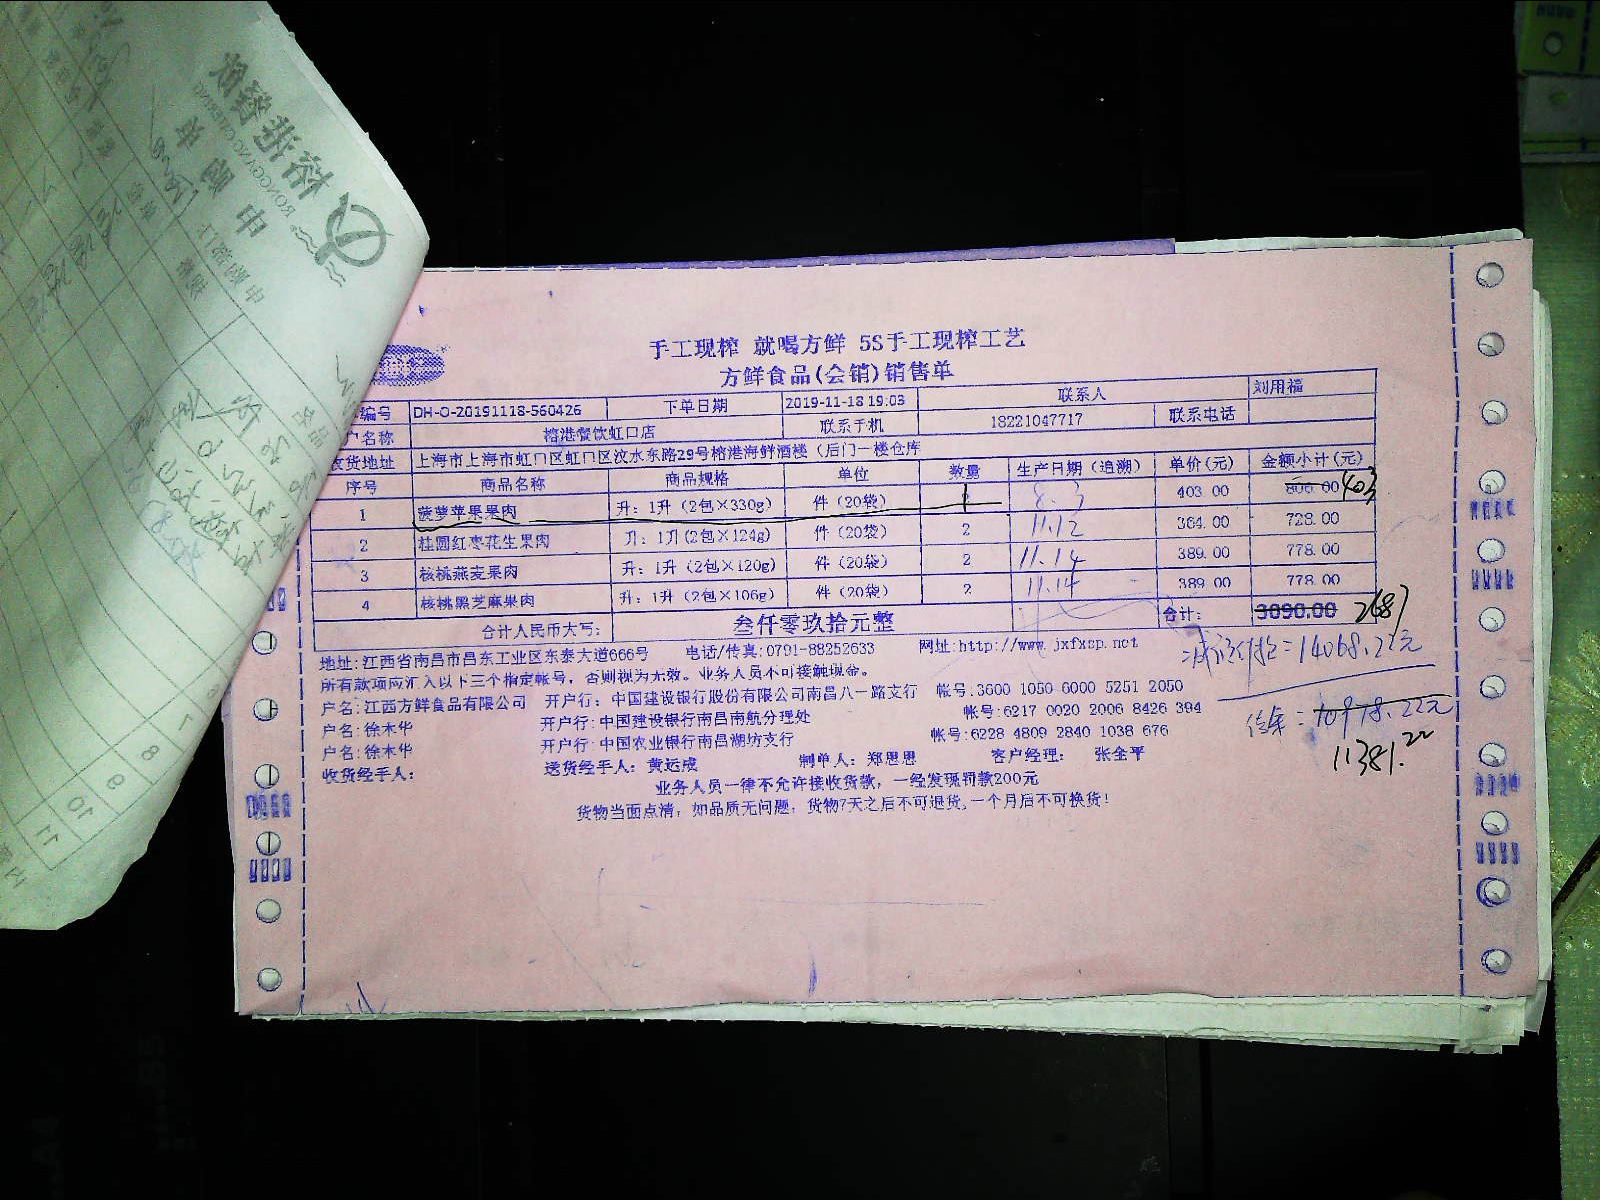 手工现榨 就喝方鲜 5S手工现榨工艺
方鲜食品(会销)销售单
编号 DH-O-20191118-560426 下单日期 2019-11-18 19:03 联系人 刘用福
户名称 榕港餐饮虹口店 联系手机 18221047717 联系电话
收货地址 上海市上海市虹口区虹口区汶水东路29号榕港海鲜酒楼（后门一楼仓库
序号 商品名称 商品规格 单位 数量 生产日期（追溯） 单价(元) 金额小计(元)
1 菠萝苹果果肉 升：1升（2包×330g） 件（20袋） 1 8.3 403.00 806.00 403
2 桂圆红枣花生果肉 升：1升（2包×124g） 件（20袋） 2 11.12 364.00 728.00
3 核桃燕麦果肉 升：1升（2包×120g） 件（20袋） 2 11.14 389.00 778.00
4 核桃黑芝麻果肉 升：1升（2包×106g） 件（20袋） 2 11.14 389.00 778.00
合计人民币大写： 叁仟零玖拾元整 合计： 3090.00 2687
地址:江西省南昌市昌东工业区东泰大道666号 电话/传真:0791-88252633 网址:http://www.jxfxsp.net
所有款项应汇入以下三个指定帐号，否则视为无效。业务人员不可接触现金。
户名:江西方鲜食品有限公司 开户行：中国建设银行股份有限公司南昌八一路支行 帐号:3600 1050 6000 5251 2050
户名:徐木华 开户行:中国建设银行南昌南航分理处 帐号:6217 0020 2006 8426 394
户名:徐木华 开户行:中国农业银行南昌湖坊支行 帐号:6228 4809 2840 1038 676
收货经手人： 送货经手人：黄远成 制单人：郑恩恩 客户经理： 张全平
业务人员一律不允许接收货款，一经发现罚款200元
货物当面点清，如品质无问题，货物7天之后不可退货,一个月后不可换货！
=14068.22元
=10978.22元
11381.22